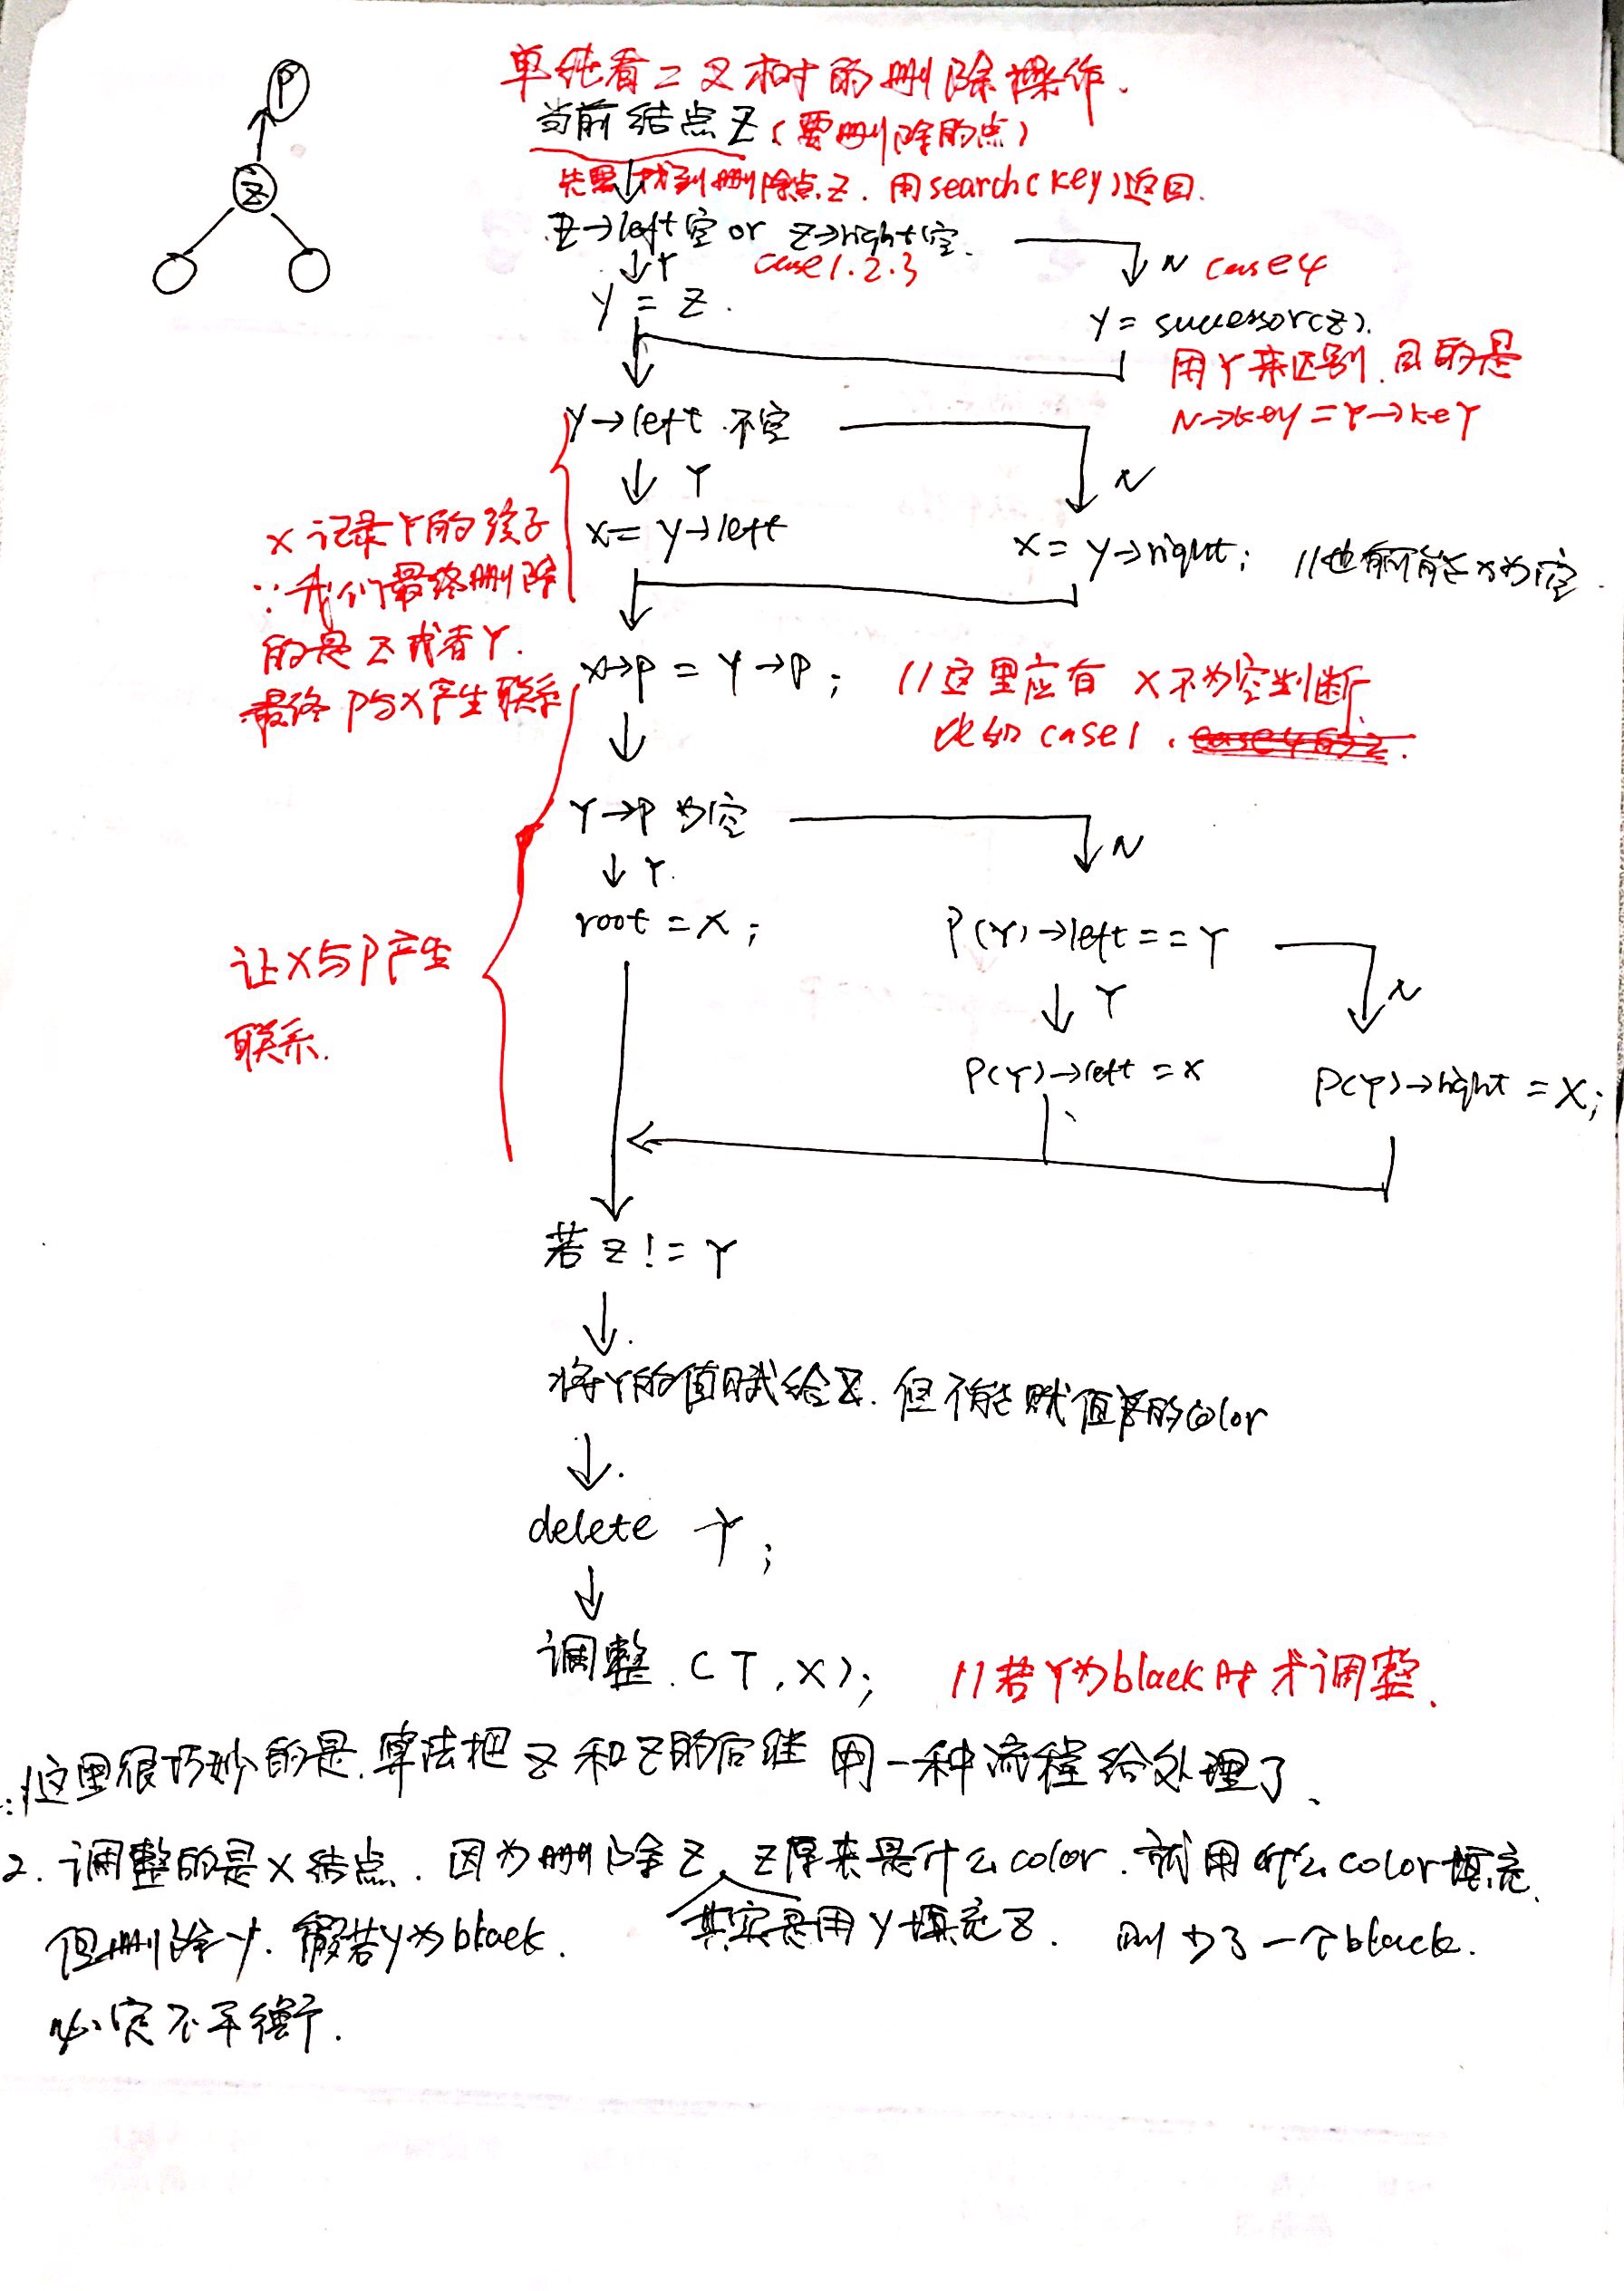 P
单纯看二叉树的删除操作.
当前结点Z(要删除的点)
Z
先要找到删除点Z. 用search(key)返回.
Z→left空 or Z→right空.
Y
case1.2.3
N case4
y = Z.
y = successor(Z).
用Y来区别.目的是
N→key = Y→key
y→left 不空
Y
N
x记录Y的孩子
x = y→left
x = y→right; //也有可能x为空.
∵我们最终删除
的是Z或者Y.
最终P与X产生联系
x→p = Y→P; //这里应有 X不为空判断
比如case1.
Y→P为空
N
Y.
root = X;
P(Y)→left == Y
让X与P产生
联系.
Y
N
P(Y)→left = X
P(Y)→right = X;
若Z != Y
将Y的值赋给Z. 但不能赋值Y的color
delete Y;
调整(T, X); //若Y为black时才调整.
这里很巧妙的是.算法把Z和Z的后继用一种流程给处理了.
2. 调整的是X结点. 因为删除Z, Z原来是什么color. 就用什么color填充.
其实是用Y填充Z.
但删除Y. 假若Y为black. 则少了一个black.
必定不平衡.